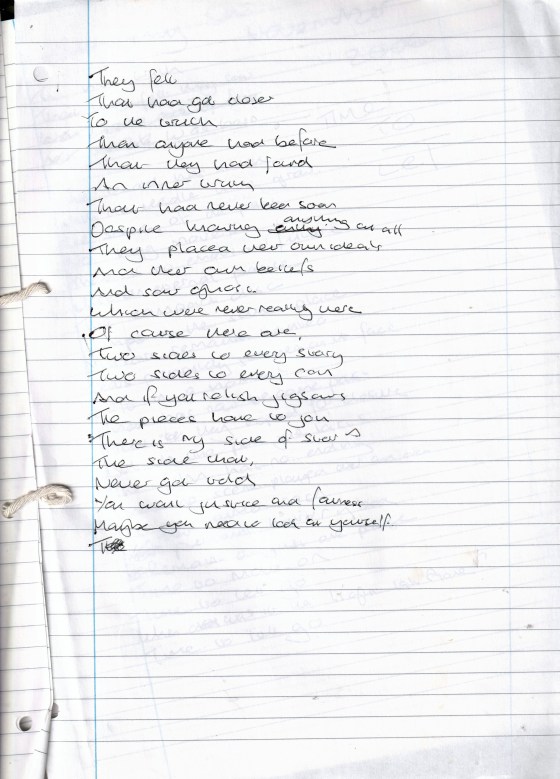 They felt
That had got closer
To the truth
Then anyone had before
That they had found
An inner truth
That had never been seen
Despite knowing anything at all
They placed their own ideals
And their own beliefs
And saw ghosts
Which were never really there
Of course there are,
Two sides to every story
Two sides to every coin
And if you relish jigsaws
The pieces have to join
There is my side of story
The side that,
Never got told
You want justice and fairness
Maybe you need to look at yourself.